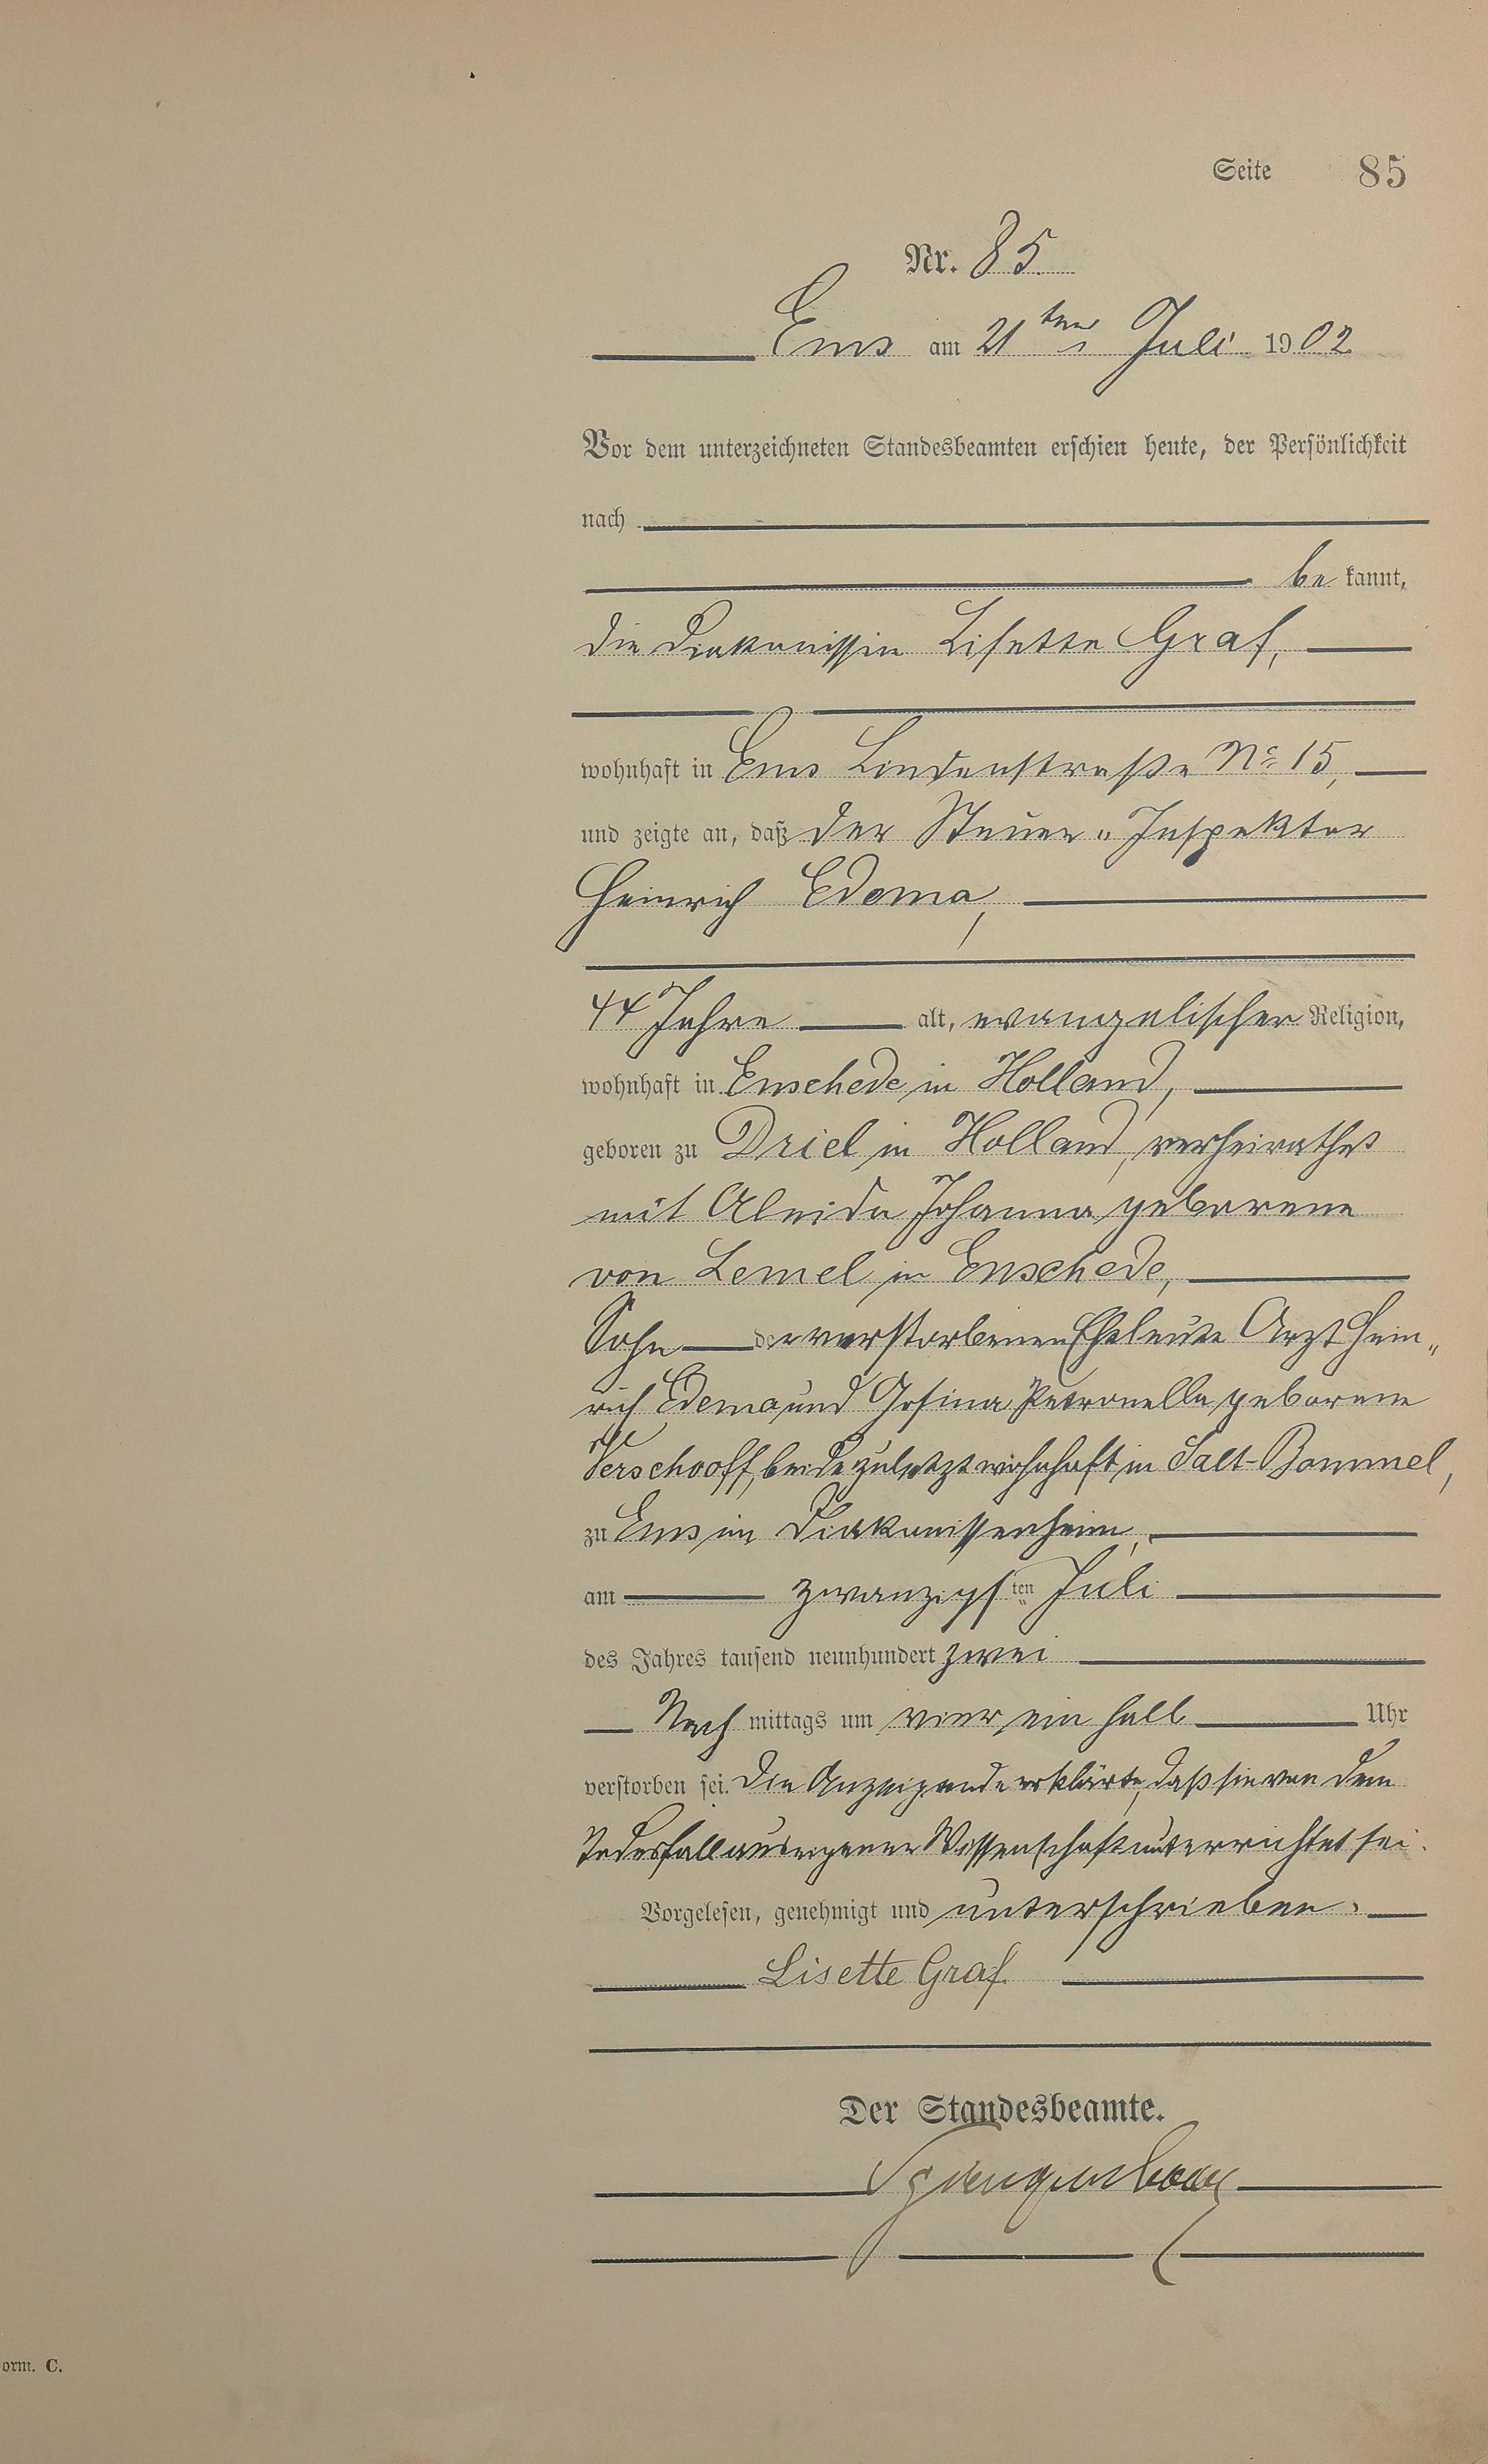 Seite 85
Nr. 85
Ems am 21ten Juli 1902
Vor dem unterzeichneten Standesbeamten erschien heute, der Persönlichkeit
nach
be kannt,
die Diakonissin Lisette Graf,
wohnhaft in Ems Lindenstraße No 15,
und zeigte an, daß der Steuer-Inspektor
Heinrich Edema,
44 Jahre alt, evangelischer Religion,
wohnhaft in Enschede in Holland,
geboren zu Driel in Holland, verheirathet
mit Aleida Johanna geborene
von Lemel in Enschede,
Sohn der verstorbenen Eheleute Arzt Hein-
rich Edema und Gosina Petronella geborene
Verschooff, beide zuletzt wohnhaft in Salt-Bommel,
zu Ems im Diakonissenheim,
am zwanzigsten Juli
des Jahres tausend neunhundert zwei
Nach mittags um vier ein halb Uhr
verstorben sei. Die Anzeigende erklärte, daß sie von dem
Todesfall aus eigener Wissenschaft unterrichtet sei.
Vorgelesen, genehmigt und unterschrieben.
Lisette Graf.
Der Standesbeamte.
orm. C.